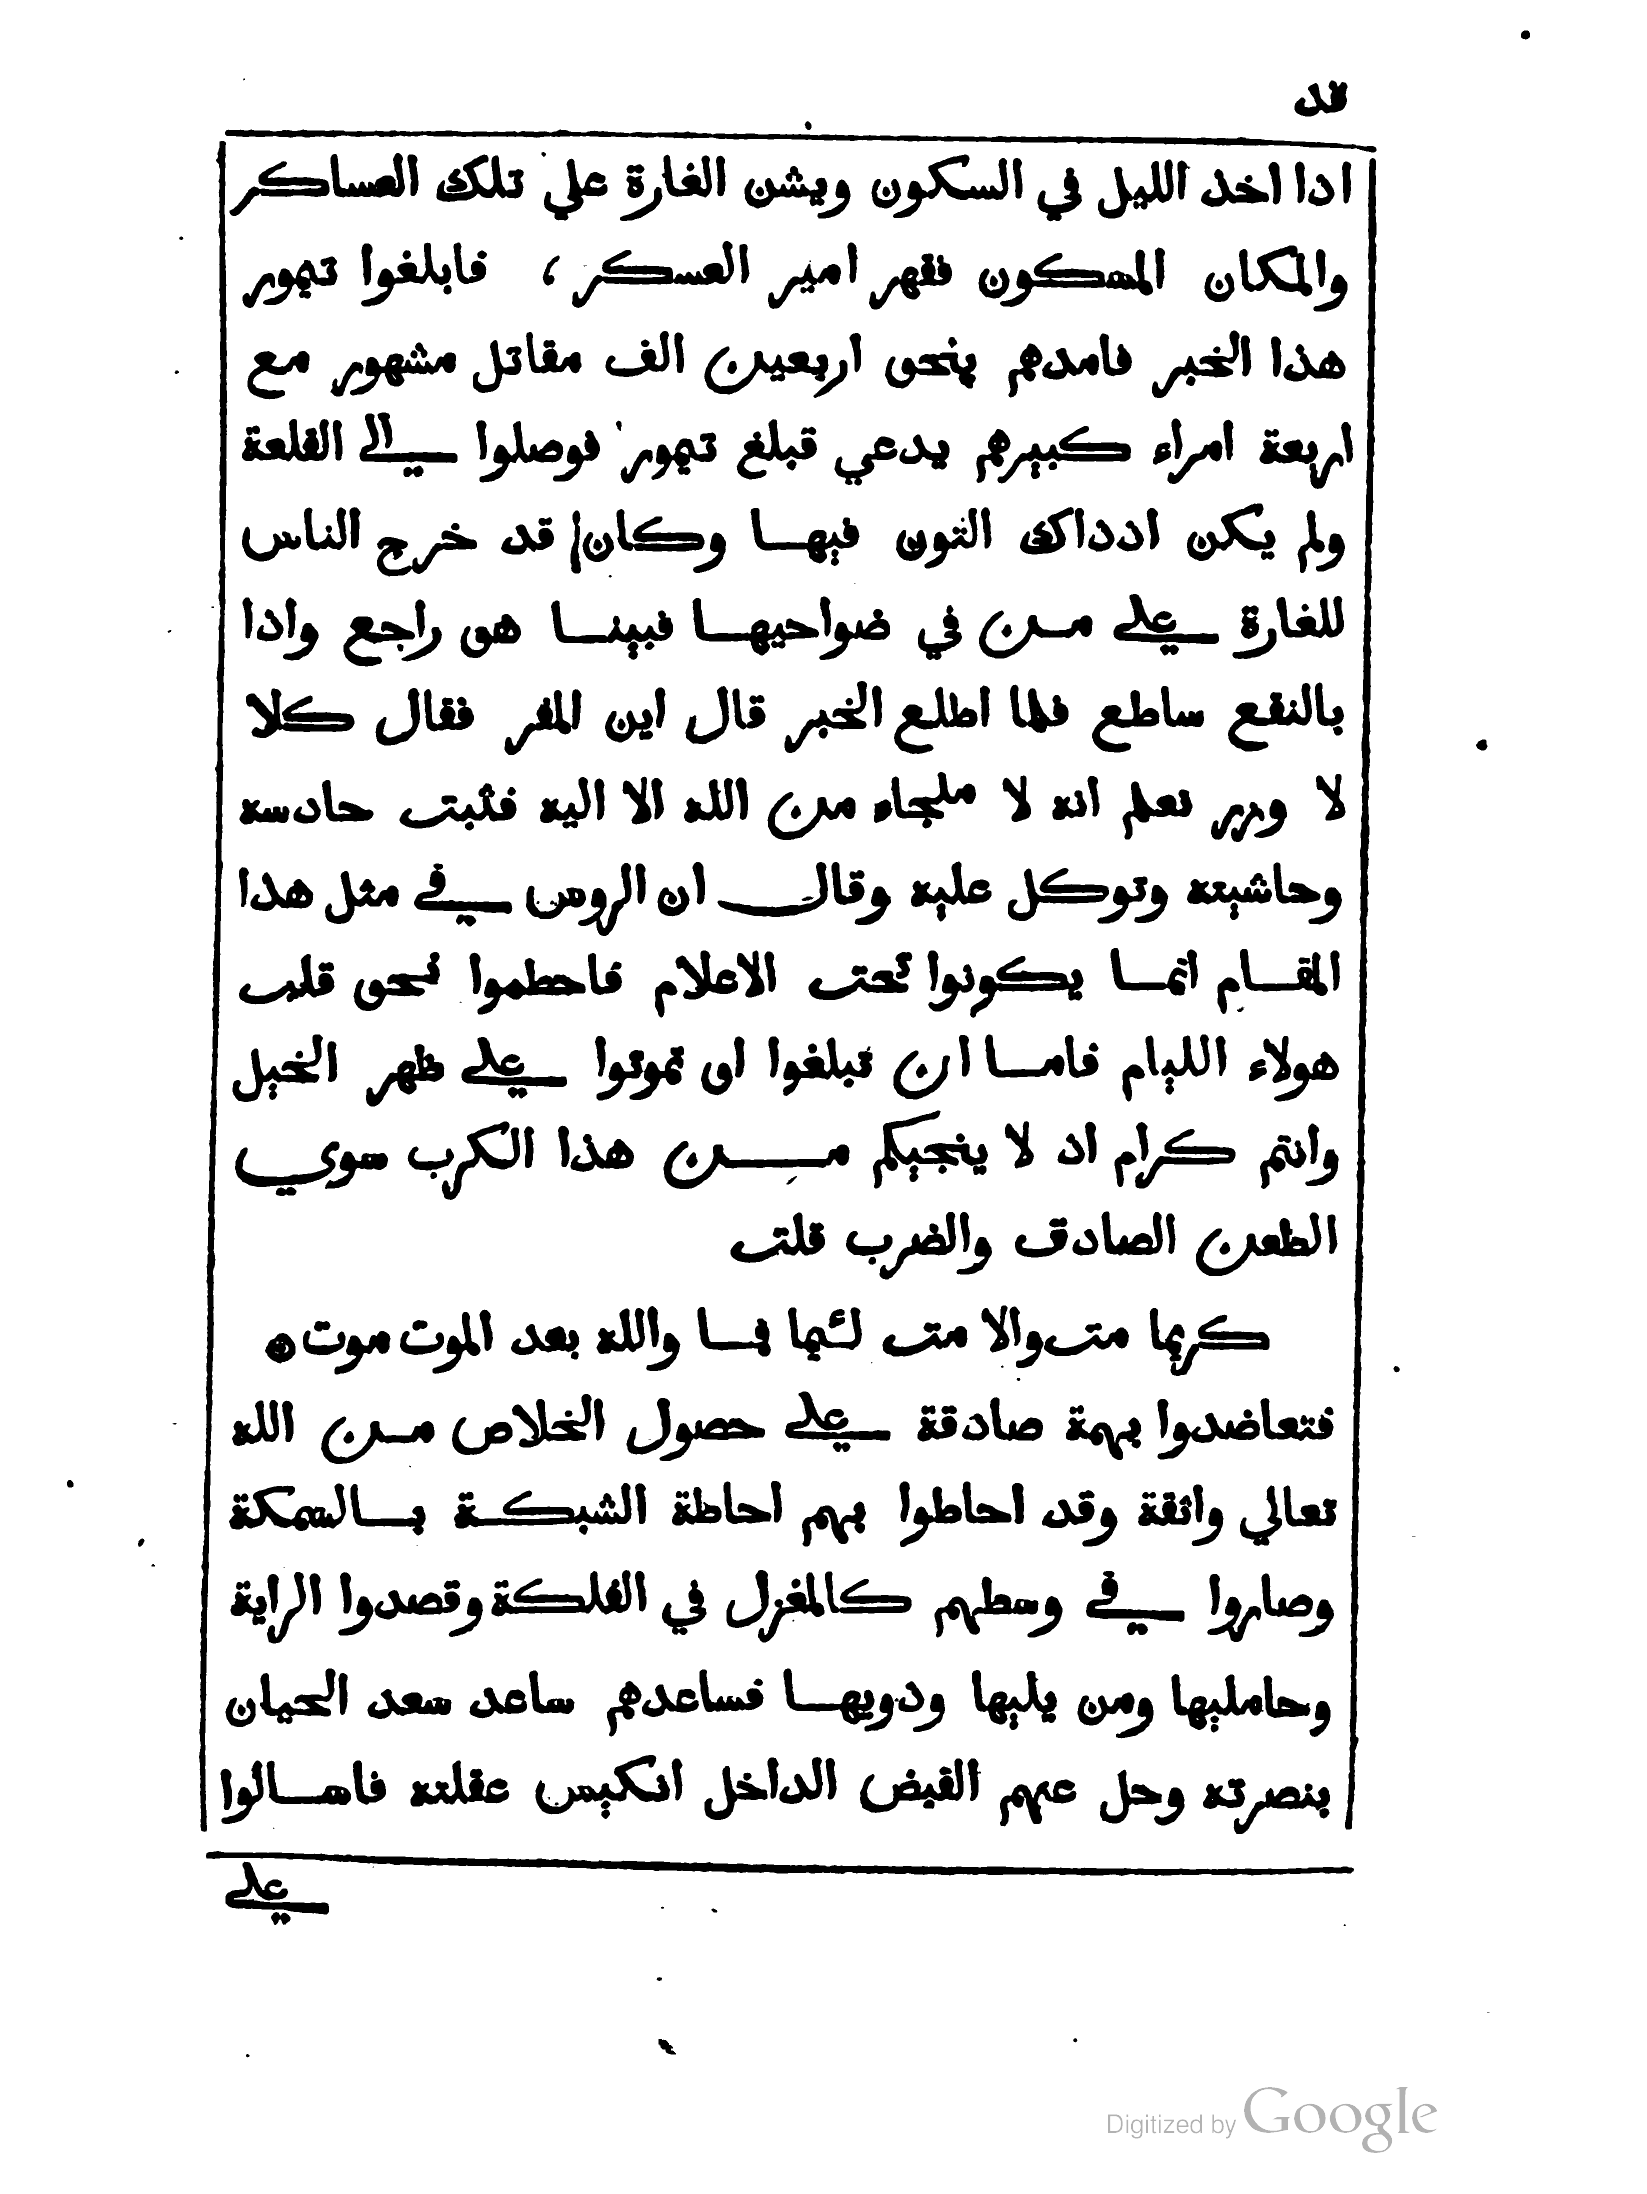 قد
ادا اخذ الليل في السكون ويشن الغارة علي تلك العساكر
والمكان المسكون فقهر امير العسكر ، فابلغوا تيمور
هذا الخبر فامدهم بنحو اربعين الف مقاتل مشهور مع
اربعة امراء كبيرهم يدعي قبلغ تيمور فوصلوا الي القلعة
ولم يكن ادداك التون فيها وكان قد خرج الناس
للغارة علي من في ضواحيها فبينا هو راجع واذا
بالنقع ساطع فلما اطلع الخبر قال اين المفر فقال كلا
لا وزر نعلم انه لا ملجاء من الله الا اليه فثبت حادسه
وحاشيته وتوكل عليه وقال ان الروس في مثل هدا
المقام انما يكونوا تحت الاعلام فاحطموا نحو قلب
هولاء الليام فاما ان تبلغوا او تموتوا علي ظهر الخيل
وانتم كرام اد لا ينجيكم من هذا الكرب سوي
الطعن الصادق والضرب قلت
كريما مت والا مت لئيما فما والله بعد الموت موت
فتعاضدوا بهمة صادقة علي حصول الخلاص من الله
تعالي واثقة وقد احاطوا بهم احاطة الشبكة بالسمكة
وصاروا في وسطهم كالمغزل في الفلكة وقصدوا الراية
وحامليها ومن يليها ودويها فساعدهم ساعد سعد الحيان
بنصرته وحل عنهم القبض الداخل انكيس عقلته فاسالوا
علي
Digitized by Google